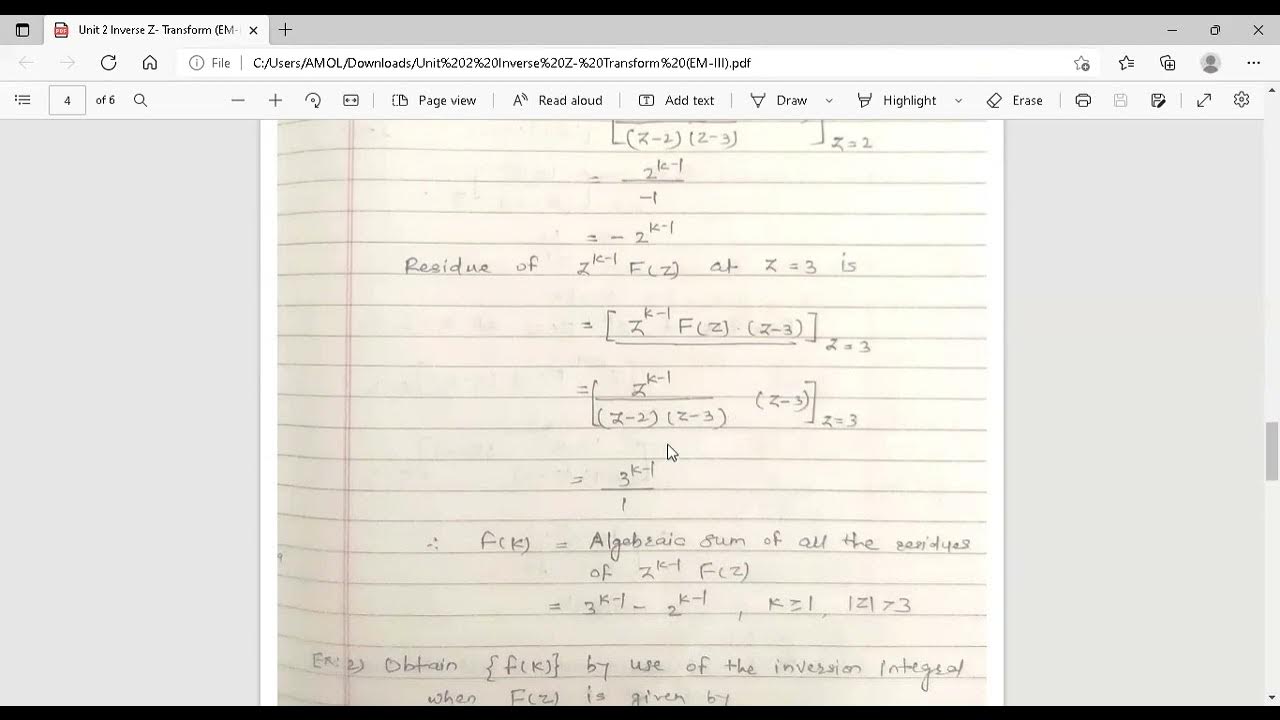 Unit 2 Inverse Z- Transform (EM-
File C:/Users/AMOL/Downloads/Unit%202%20Inverse%20Z-%20Transform%20(EM-III).pdf
4 of 6 Page view Read aloud Add text Draw Highlight Erase
(z-2)(z-3) ]z=2
= 2^{k-1}
-1
= - 2^{k-1}
Residue of z^{k-1} F(z) at z = 3 is
= [ z^{k-1} F(z) · (z-3) ]z=3
= [ z^{k-1} / (z-2)(z-3) (z-3) ]z=3
= 3^{k-1}
1
∴ f(k) = Algebraic sum of all the residues
of z^{k-1} F(z)
= 3^{k-1} - 2^{k-1} , k≥1, |z|>3
Ex: 2) Obtain {f(k)} by use of the inversion integral
when F(z) is given by